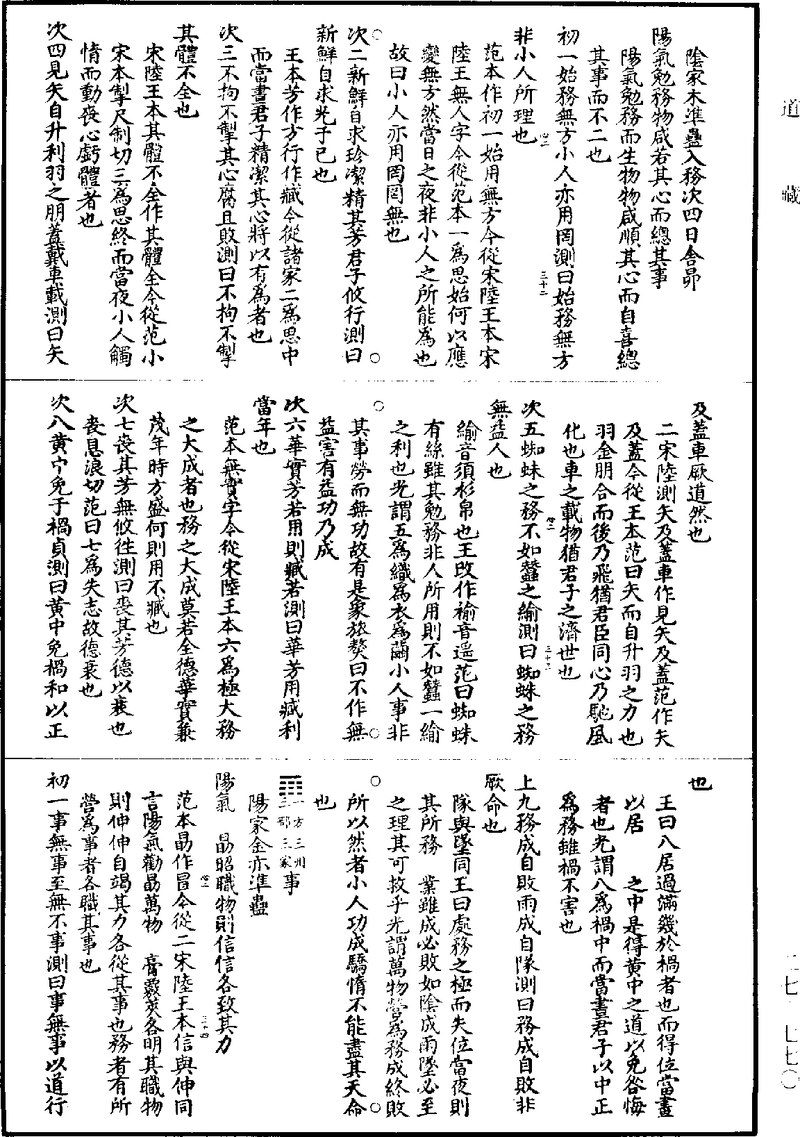 道藏
陰家木準蠱入務次四日舍昴
陽氣勉務物咸若其心而總其事
陽氣勉務而生物物咸順其心而自喜總
其事而不二也
初一始務無方小人亦用罔測曰始務無方
非小人所理也
范本作初一始用無方今從宋陸王本宋
陸王無人字今從范本一為思始何以應
變無方然當日之夜非小人之所能為也
故曰小人亦用罔罔無也
次二新鮮自求珍潔精其芳君子攸行測曰
新鮮自求光于己也
王本芳作方行作臧今從諸家二為思中
而當晝君子精潔其心將以有為者也
次三不拘不掣其心腐且敗測曰不拘不掣
其體不全也
宋陸王本其體不全作其體全今從范小
宋本掣尺制切三為思終而當夜小人觸
情而動喪心虧體者也
次四見矢自升利羽之朋蓋戴車載測曰矢
及蓋車厥道然也
二宋陸測矢及蓋車作見矢及蓋范作矢
及蓋今從王本范曰矢而自升羽之力也
羽金朋合而後乃飛猶君臣同心乃馳風
化也車之載物猶君子之濟世也
次五蜘蛛之務不如蠶之緰測曰蜘蛛之務
無益人也
緰音須衫帛也王改作褕音遥范曰蜘蛛
有絲雖其勉務非人所用則不如蠶一緰
之利也光謂五為織為衣為繭小人事非
其事勞而無功故有是象旅獒曰不作無
益害有益功乃成
次六華實芳若用則臧若測曰華芳用臧利
當年也
范本無實字今從宋陸王本六為極大務
之大成者也務之大成莫若全德華實兼
茂年時方盛何則用不臧也
次七喪其芳無攸往測曰喪其芳德以衰也
喪息浪切范曰七為失志故德衰也
次八黃中免于禍貞測曰黃中免禍和以正
也
王曰八居過滿幾於禍者也而得位當晝
以居 之中是得黃中之道以免咎悔
者也光謂八為禍中而當晝君子以中正
為務雖禍不害也
上九務成自敗雨成自隊測曰務成自敗非
厥命也
隊與墜同王曰處務之極而失位當夜則
其所務 業雖成必敗如陰成雨墜必至
之理其可救乎光謂萬物營為務成終敗
所以然者小人功成驕惰不能盡其天命
也
一方三州三部三家事
陽家金亦準蠱
陽氣 勗昭職物則信信各致其力
范本勗作冒今從二宋陸王本信與伸同
言陽氣勸勗萬物 膏霡莢各明其職物
則伸伸自竭其力各從其事也務者有所
營為事者各職其事也
初一事無事至無不事測曰事無事以道行
二七 七七〇